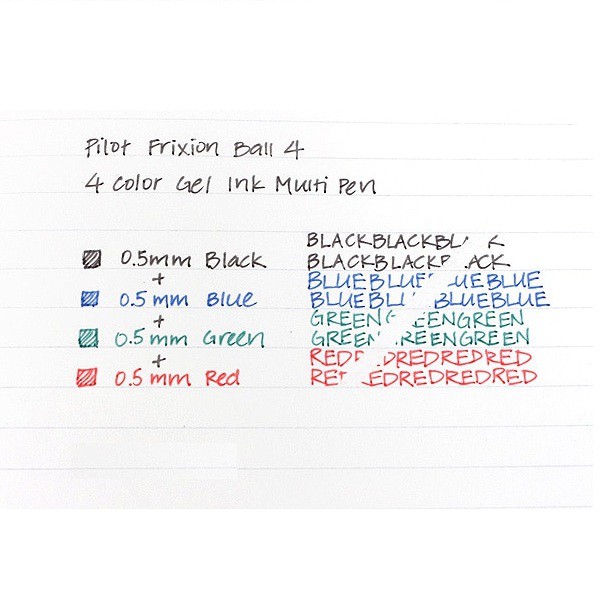 Pilot Frixion Ball 4
4 Color Gel Ink Multi Pen
0.5mm Black
+
0.5mm Blue
+
0.5mm Green
+
0.5mm Red
BLACKBLACKBL K
BLACKBLACKB ACK
BLUEBLUEB UEBLUE
BLUEBLU BLUEBLUE
GREENG EENGREEN
GREEN REENGREEN
REDR DREDREDRED
RE EDREDREDRED